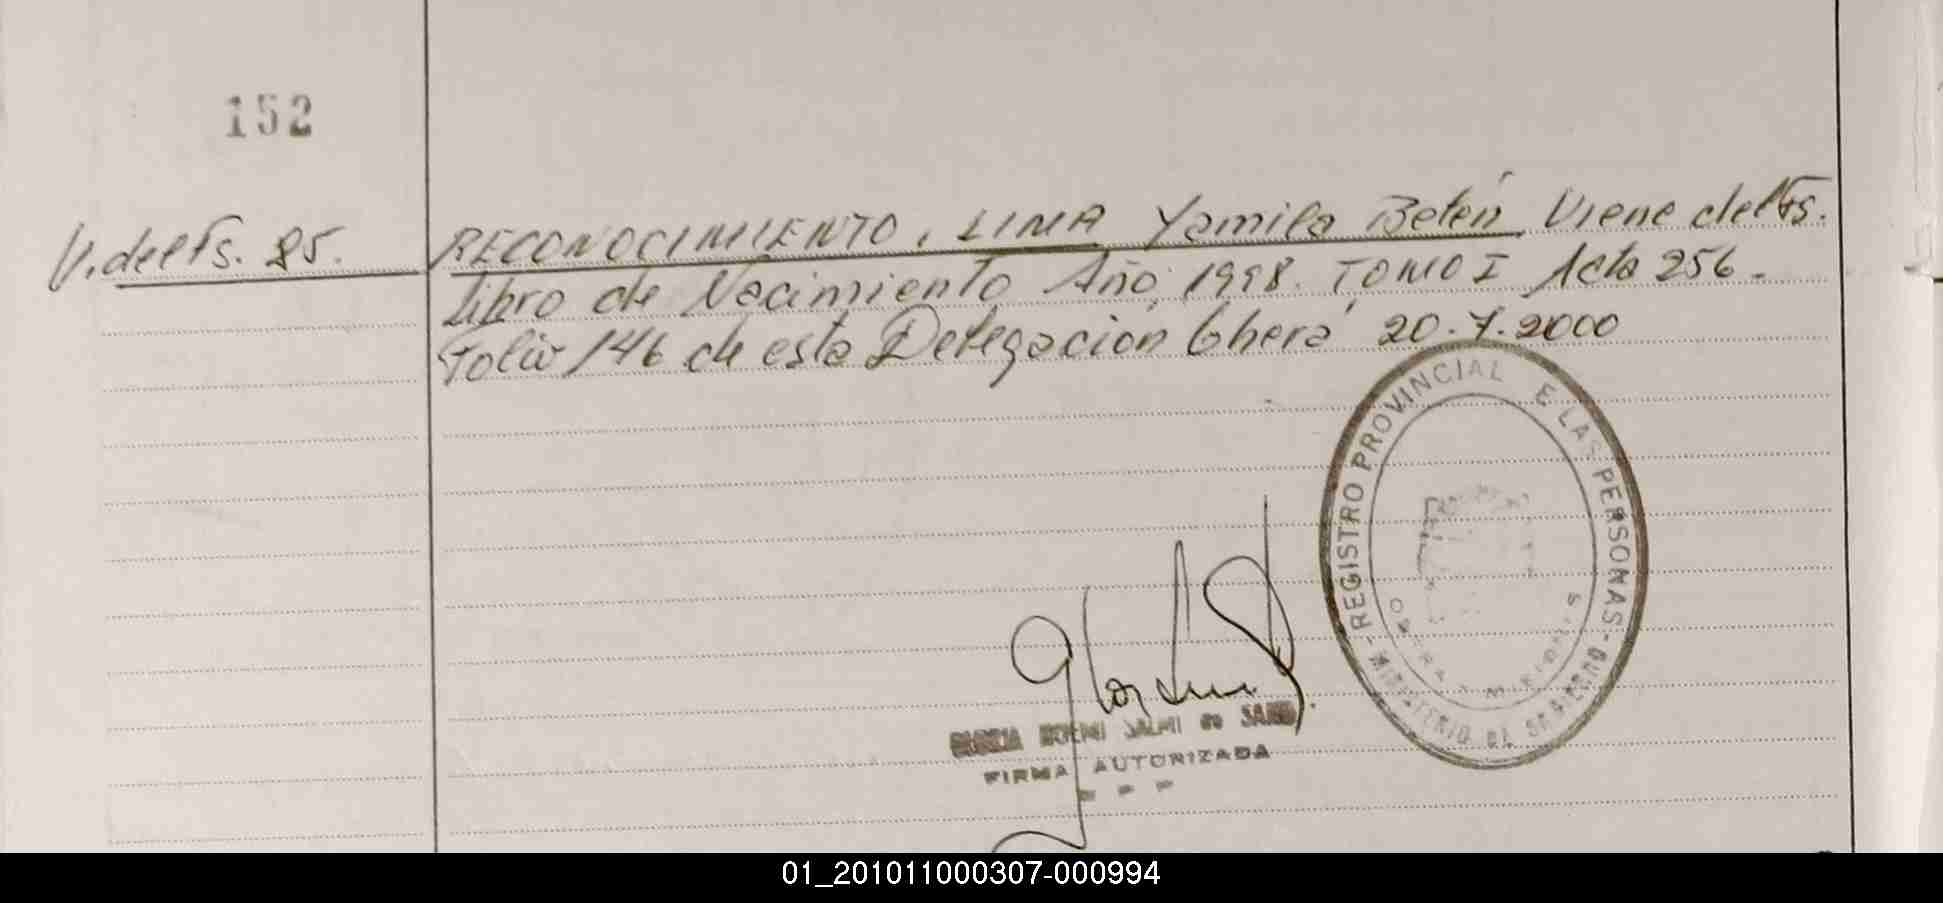 152
V. del Fs. 85. RECONOCIMIENTO, LIMA Yamila Belén Viene del Fs.
Libro de Nacimiento Año 1998. TOMO I Acta 256.
Folio 146 de esta Delegación Oberá 20.7.2000
REGISTRO PROVINCIAL E LAS PERSONAS -
MINISTERIO DE GOBIERNO
OBERA - MISIONES
NOEMI de
FIRMA AUTORIZADA
01_201011000307-000994